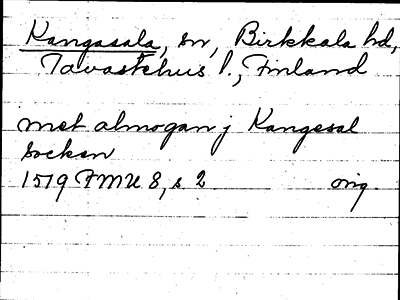 Kangasala, sn, Birkkala hd,
Tavastehus l., Finland
met almogan j Kangesal
socken
1519 FMU 8, s 2 orig.